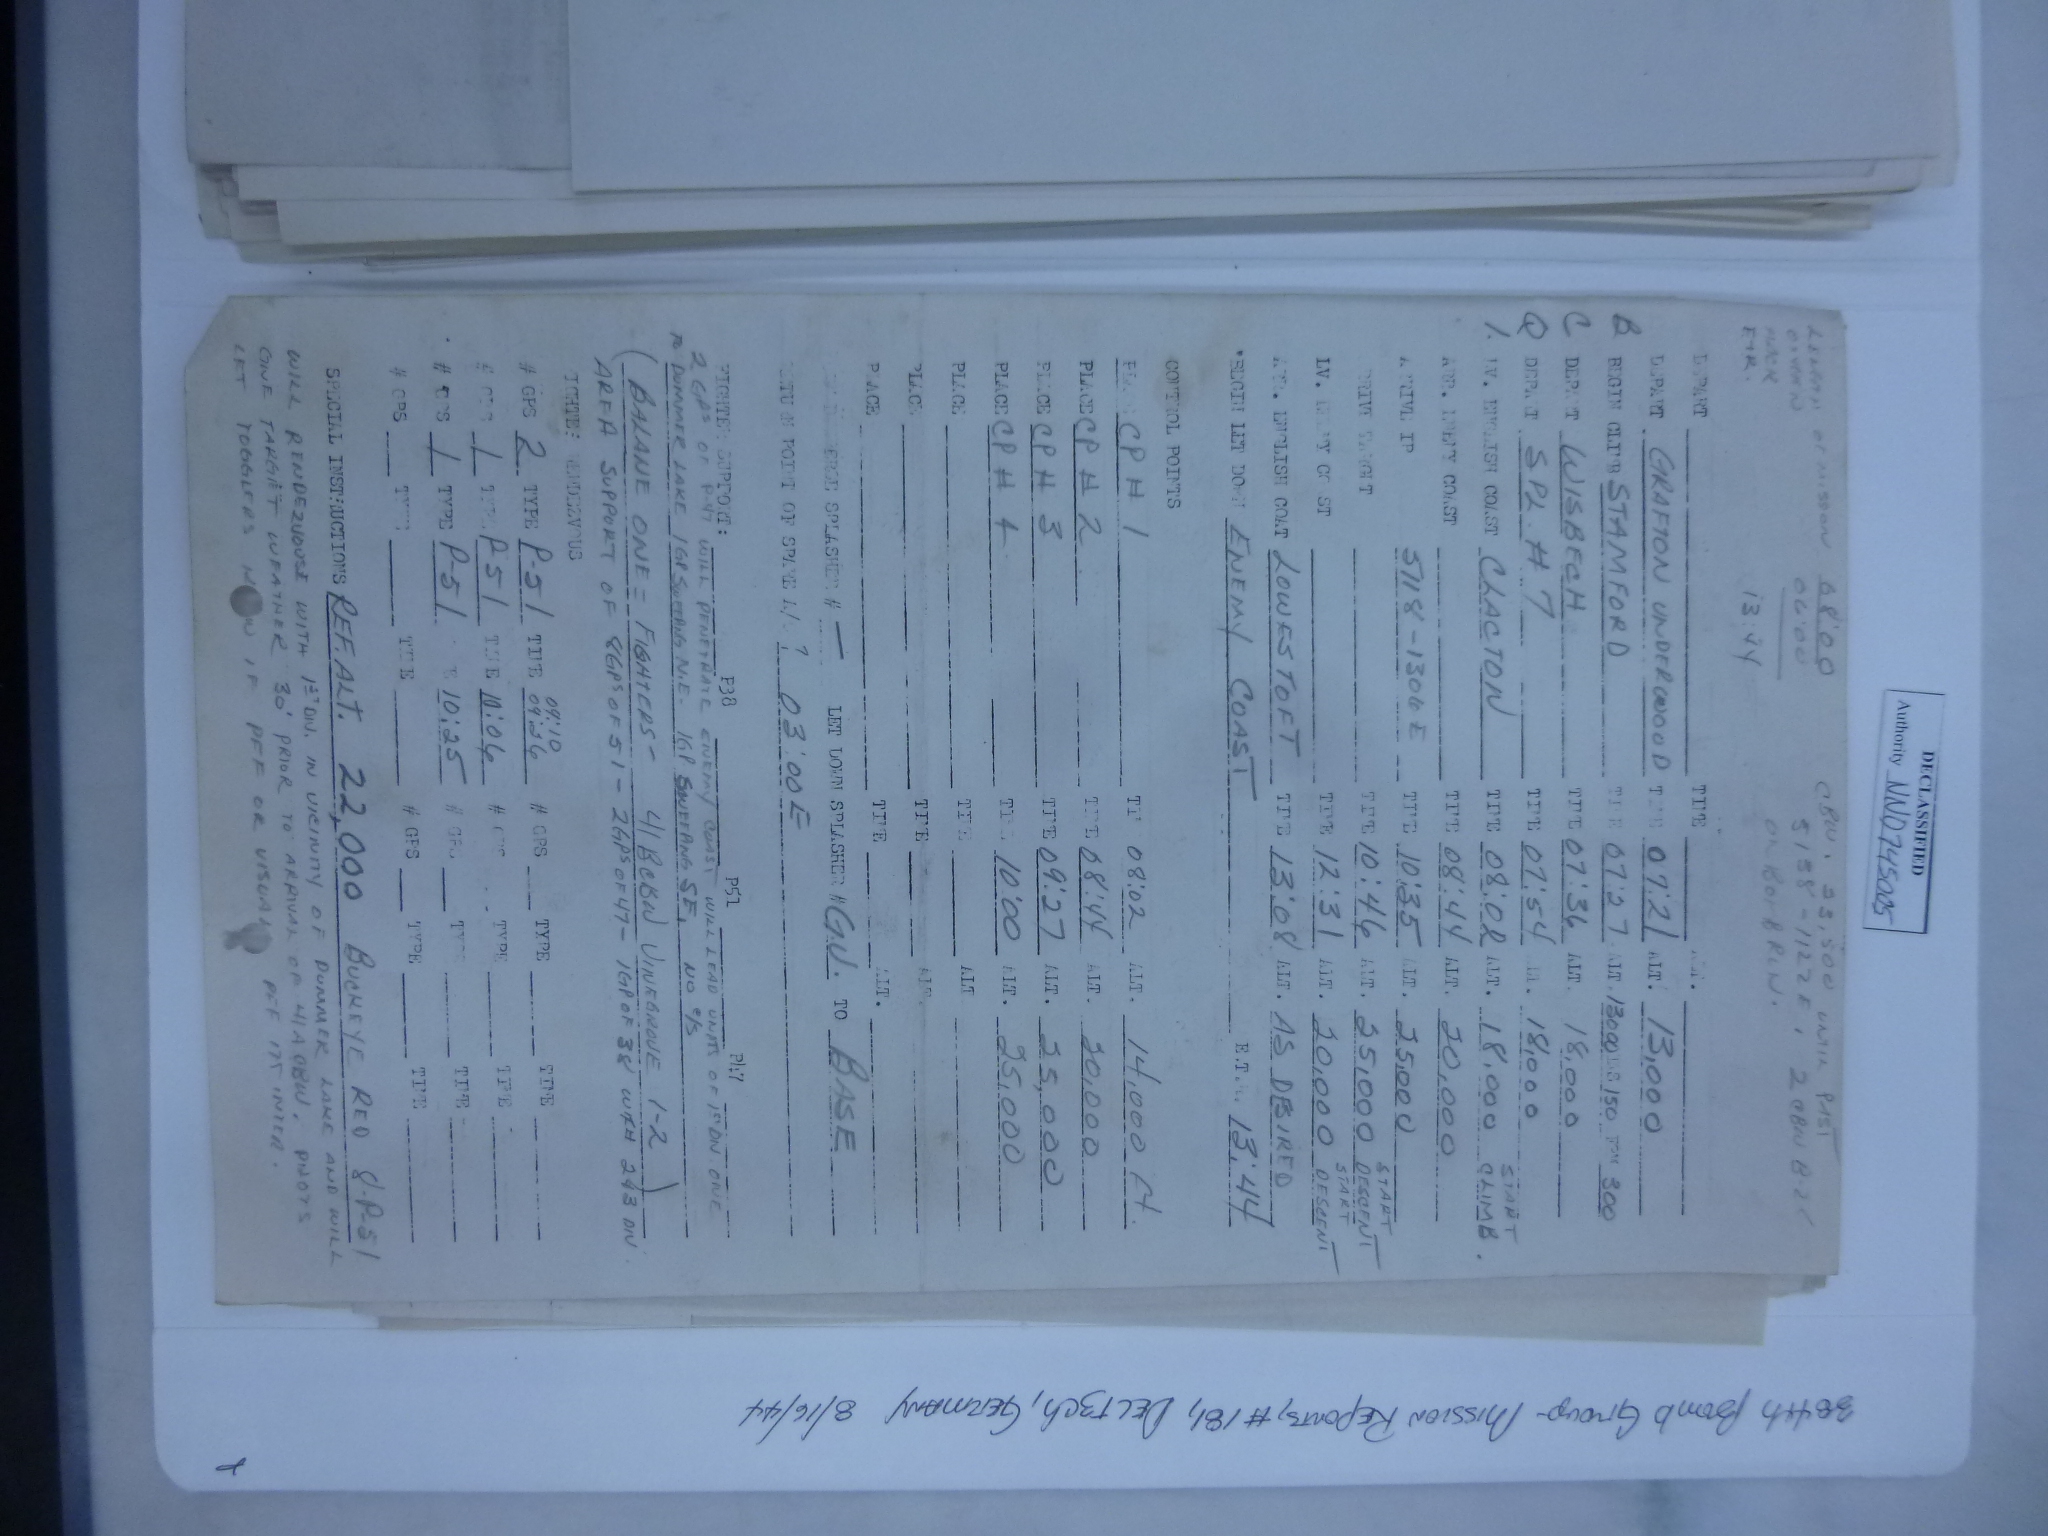 DECLASSIFIED
Authority NND 745005
LENGTH OF MISSION 08:00
OXYGEN 06:00
ETR. 13:44
CBW. 23,500 WILL PAST
5138-1122E, 2 CBW B-24
ON BOMB RUN.
DEPART TIME ALT.
DEPART GRAFTON UNDERWOOD TIME 07:21 ALT. 13,000
B BEGIN CLIMB STAMFORD TIME 07:27 ALT. 13000 150 300
C DEPART WISBECH TIME 07:36 ALT. 18,000
D DEPART SPL. #7 TIME 07:54 ALT. 18,000
1. LV. ENGLISH COAST CLACTON TIME 08:02 ALT. 18,000 START CLIMB.
ARR. ENEMY COAST TIME 08:44 ALT. 20,000
ARRIVE IP 5118-1304E TIME 10:35 ALT. 25000
TIME 10:46 ALT. 25,000 START DESCENT
LV. ENEMY COAST TIME 12:31 ALT. 20,000 START DESCENT
ARR. ENGLISH COAST LOWESTOFT TIME 13:08 ALT. AS DESIRED
BEGIN LET DOWN ENEMY COAST E.T.R. 13:44
CONTROL POINTS
PLACE CP #1 TIME 08:02 ALT. 14,000 ft.
PLACE CP #2 TIME 08:44 ALT. 20,000
PLACE CP #3 TIME 09:27 ALT. 25,000
PLACE CP #4 TIME 10:00 ALT. 25,000
PLACE TIME ALT
PLACE TIME ALT.
PLACE TIME ALT.
SPLASHER # — LET DOWN SPLASHER # G.U. TO BASE
POINT OF ? 03:00E
FIGHTER SUPPORT: P38 P51 P47
2 GPS OF P47 WILL PENETRATE ENEMY COAST WILL LEAD UNITS OF 1ST DN ONE
TO DUMMER LAKE 1GP SWEEPING N.E. 1GP SWEEPING S.E. NO e/s
(BALANE ONE = FIGHTERS - 41 BCBW VINEGROVE 1-2)
AREA SUPPORT OF 8GPS OF 51 - 2GPS OF 47 - 1GP OF 38 WITH 2 & 3 DN.
FIGHTER RENDEVOUS
# GPS 2 TYPE P-51 TIME 09:10 09:36 # GPS TYPE TIME
# GPS 1 TYPE P51 TIME 10:06 # GPS TYPE TIME
# GPS 1 TYPE P-51 10:25 # GPS TYPE TIME
# GPS TYPE TIME # GPS TYPE TIME
SPECIAL INSTRUCTIONS REF. ALT. 22,000 BUCKEYE RED 8-P-51
WILL RENDEZVOUS WITH 1ST DN. IN VICINITY OF DUMMER LAKE AND WILL
GIVE TARGET WEATHER 30' PRIOR TO ARRIVAL OF 41 A CBW. PILOTS
LET TOGGLERS KNOW IF PFF OR VISUAL PFF 1ST INTER.
384th Bomb Group - Mission Reports, #181, Delitzch, Germany 8/16/44